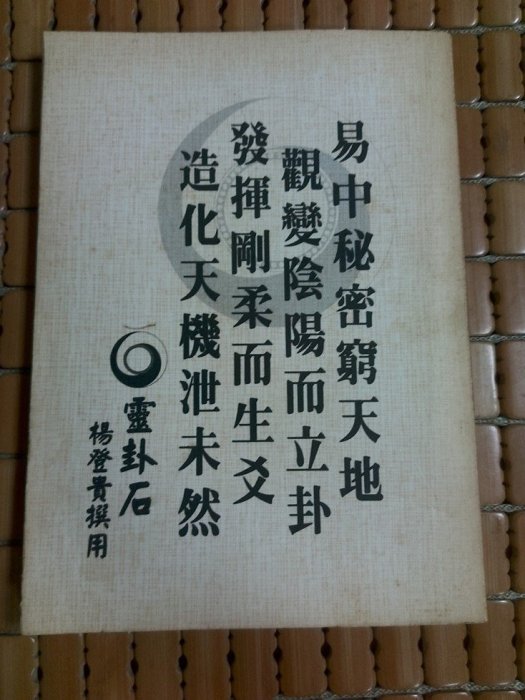 易中秘密窮天地
觀變陰陽而立卦
發揮剛柔而生爻
造化天機泄未然
靈卦石
楊登貴撰用